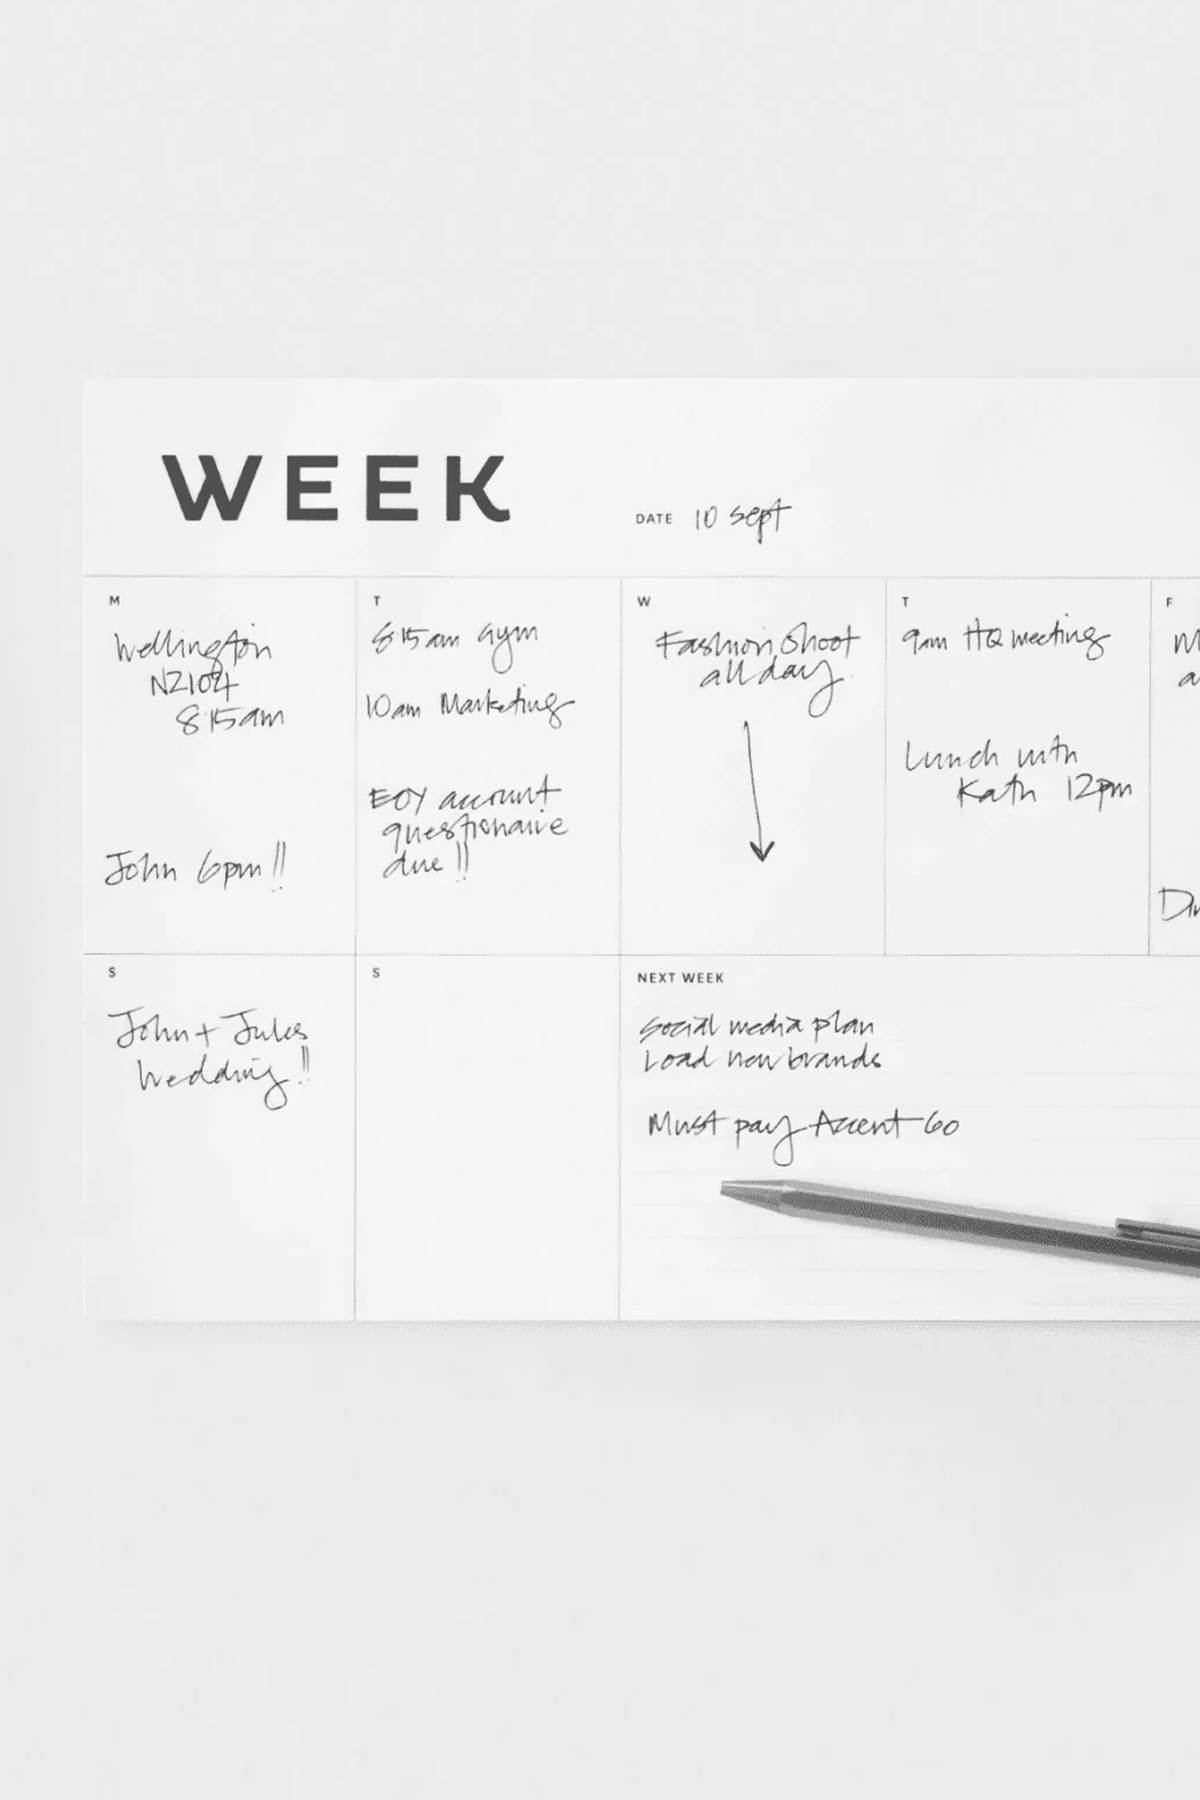 WEEK
DATE 10 Sept
M
Wellington
NZ104
815am
John 6pm!!
T
815am Gym
10am Marketing
EOY account
questionaire
due!!
W
Fashion Shoot
all day
T
9am HQ meeting
Lunch with
Kath 12pm
F
S
John + Jules
Wedding!!
S
NEXT WEEK
Social media plan
Load new brands
Must pay Accent Go